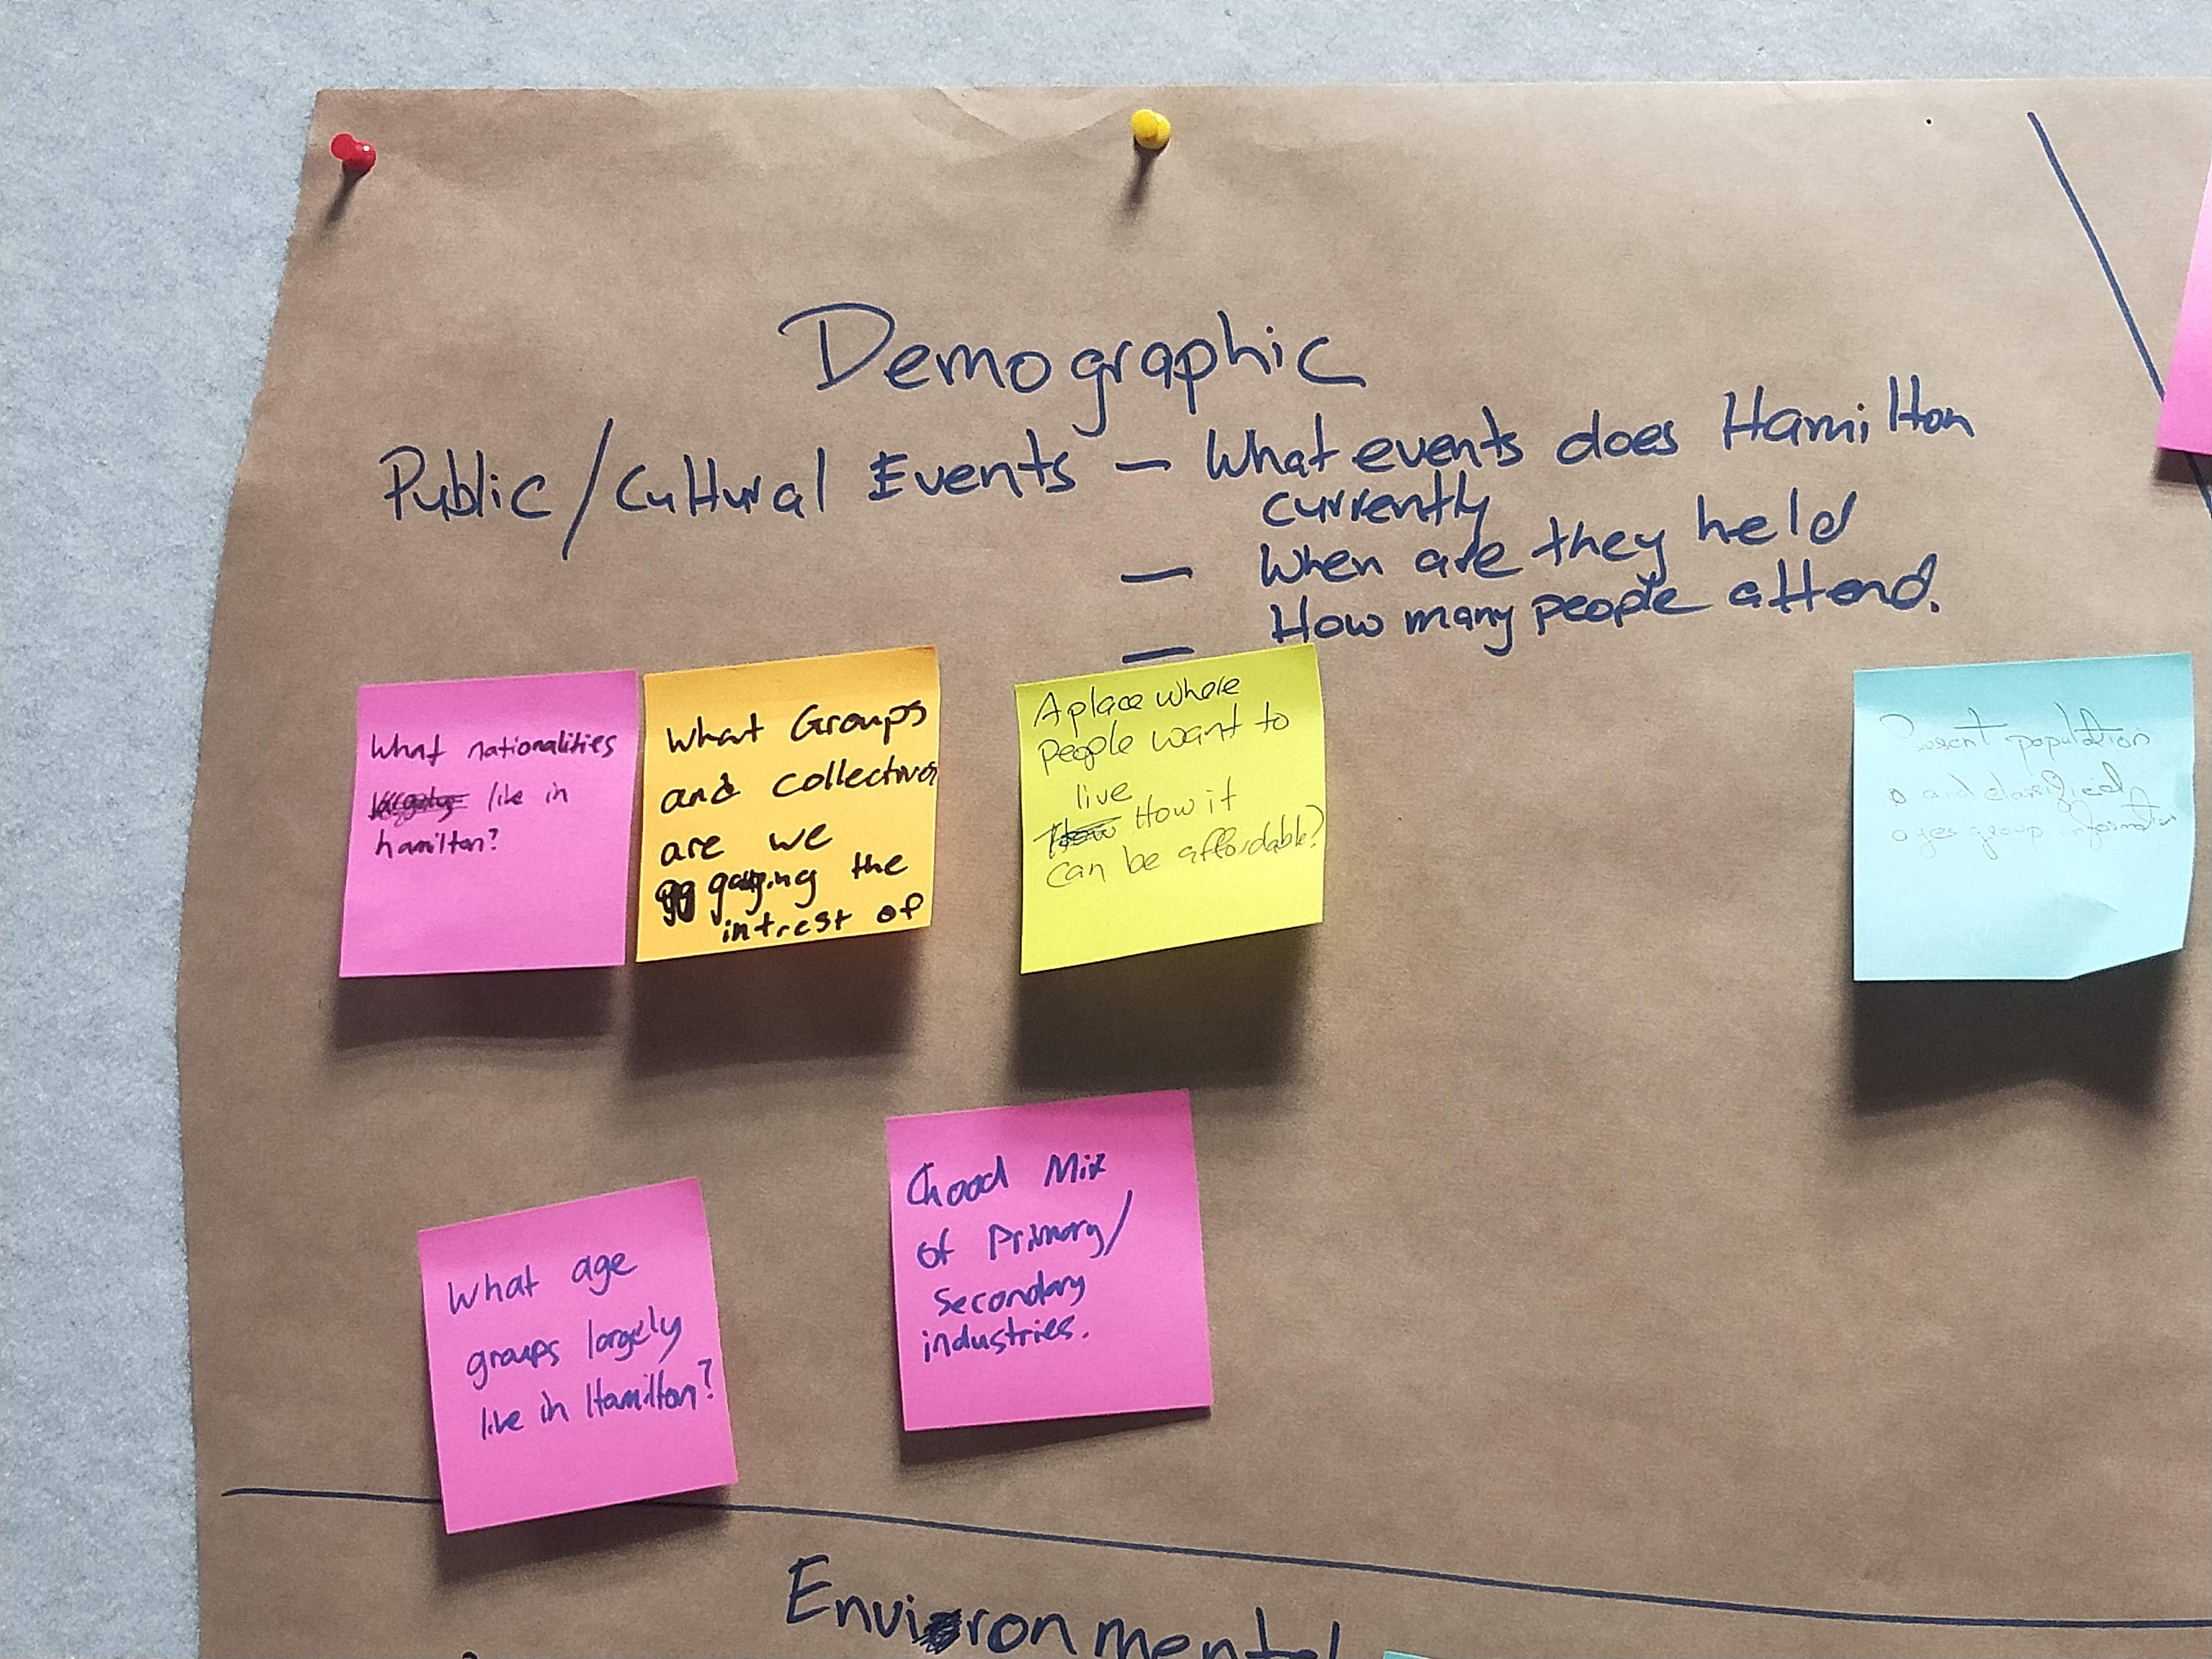 Demographic
Public/Cultural Events — What events does Hamilton
currently
— When are they held
— How many people attend.
What nationalities
live in
hamilton?
What Groups
and collectives
are we
gauging the
intrest of
A place where
people want to
live
How it
can be affordable?
population
and classified
ages group information
What age
groups largely
live in Hamilton?
Good Mix
of Primary/
Secondary
industries.
Environmental